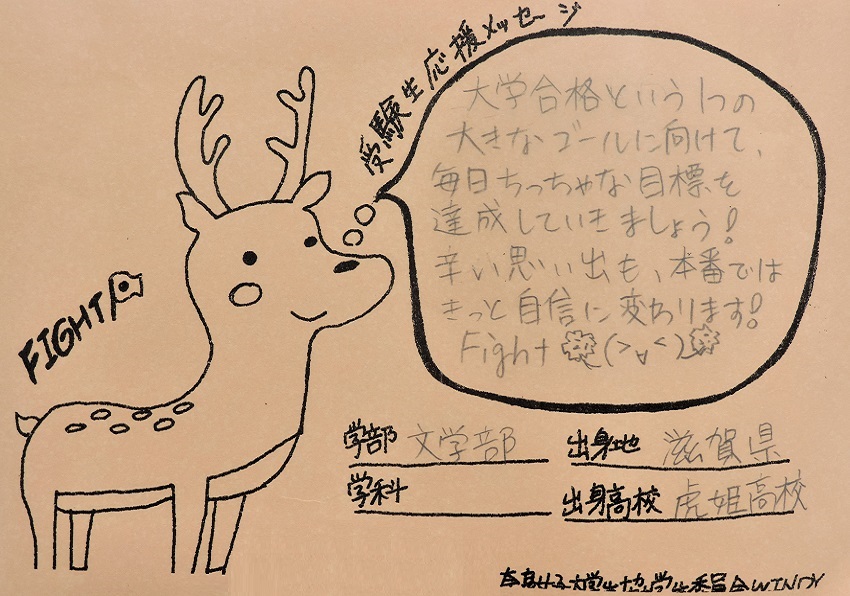 受験生応援メッセージ
大学合格という1つの
大きなゴールに向けて、
毎日ちっちゃな目標を
達成していきましょう!
辛い思い出も、本番では
きっと自信に変わります!
Fight (>∨<)
FIGHT
学部 文学部
出身地 滋賀県
学科
出身高校 虎姫高校
奈良女子大学生協学生委員会WINDY